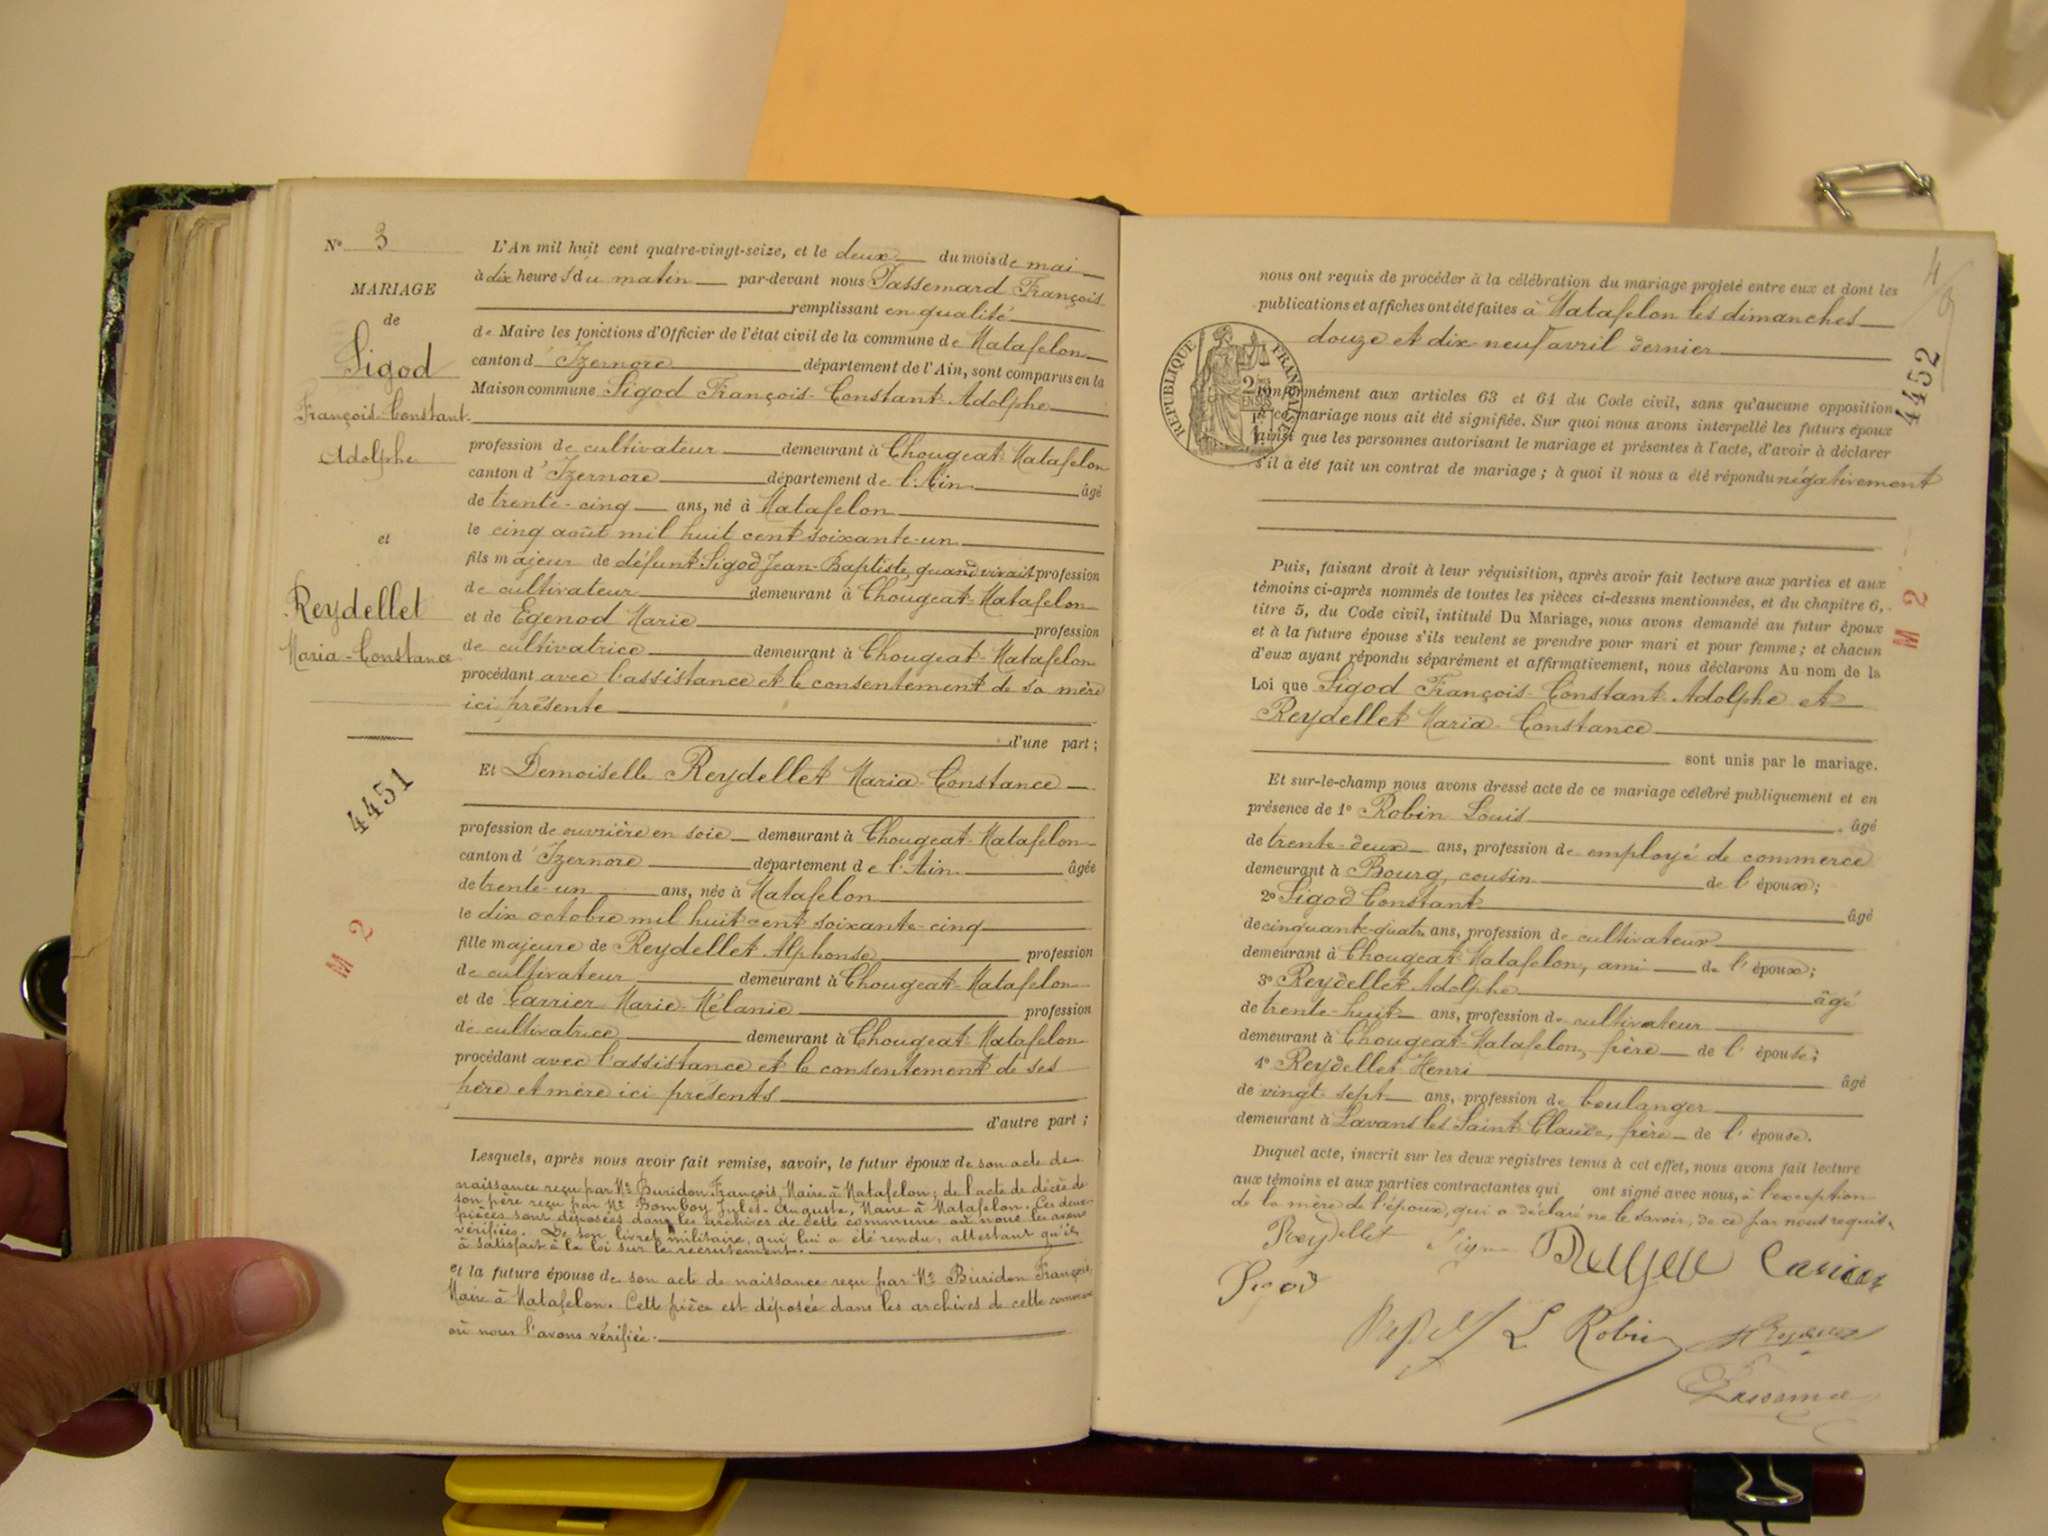 N° 3
MARIAGE
de
Sigod
François-Constant-
Adolphe
et
Reydellet
Maria-Constance
4451
M 2
L'An mil huit cent quatre-vingt-seize, et le deux du mois de mai
à dix heures du matin par-devant nous Passemard François
remplissant en qualité
de Maire les fonctions d'Officier de l'état civil de la commune de Matafelon
canton d'Izernore département de l'Ain, sont comparus en la
Maison commune Sigod François-Constant-Adolphe
profession de cultivateur demeurant à Chougeat-Matafelon
canton d'Izernore département de l'Ain âgé
de trente-cinq ans, né à Matafelon
le cinq août mil huit cent soixante-un
fils majeur de défunt Sigod Jean-Baptiste, quand vivait profession
de cultivateur demeurant à Chougeat-Matafelon
et de Egenod Marie profession
de cultivatrice demeurant à Chougeat-Matafelon
procédant avec l'assistance et le consentement de sa mère
ici présente
d'une part;
Et Demoiselle Reydellet Maria-Constance
profession de ouvrière en soie demeurant à Chougeat-Matafelon
canton d'Izernore département de l'Ain âgée
de trente-un ans, née à Matafelon
le dix octobre mil huit cent soixante-cinq
fille majeure de Reydellet Alphonse profession
de cultivateur demeurant à Chougeat-Matafelon
et de Carrier Marie-Mélanie profession
de cultivatrice demeurant à Chougeat-Matafelon
procédant avec l'assistance et le consentement de ses
père et mère ici présents
d'autre part;
Lesquels, après nous avoir fait remise, savoir, le futur époux de son acte de
naissance reçu par Mr Buridon François, Maire à Matafelon; de l'acte de décès de
son père reçu par Mr Bomboy Jules-Auguste, Maire à Matafelon. Ces deux
pièces sont déposées dans les archives de cette commune où nous les avons
vérifiées. De son livret militaire, qui lui a été rendu, attestant qu'il
a satisfait à la loi sur le recrutement.
et la future épouse de son acte de naissance reçu par Mr Buridon François,
Maire à Matafelon. Cette pièce est déposée dans les archives de cette commune
où nous l'avons vérifiée.
4
4452
M 2
nous ont requis de procéder à la célébration du mariage projeté entre eux et dont les
publications et affiches ont été faites à Matafelon les dimanches
douze et dix-neuf avril dernier
RÉPUBLIQUE FRANÇAISE
conformément aux articles 63 et 64 du Code civil, sans qu'aucune opposition
à ce mariage nous ait été signifiée. Sur quoi nous avons interpellé les futurs époux
ainsi que les personnes autorisant le mariage et présentes à l'acte, d'avoir à déclarer
s'il a été fait un contrat de mariage; à quoi il nous a été répondu négativement
Puis, faisant droit à leur réquisition, après avoir fait lecture aux parties et aux
témoins ci-après nommés de toutes les pièces ci-dessus mentionnées, et du chapitre 6,
titre 5, du Code civil, intitulé Du Mariage, nous avons demandé au futur époux
et à la future épouse s'ils veulent se prendre pour mari et pour femme; et chacun
d'eux ayant répondu séparément et affirmativement, nous déclarons Au nom de la
Loi que Sigod François-Constant-Adolphe et
Reydellet Maria-Constance
sont unis par le mariage.
Et sur-le-champ nous avons dressé acte de ce mariage célébré publiquement et en
présence de 1° Robin Louis âgé
de trente-deux ans, profession de employé de commerce
demeurant à Bourg, cousin de l'époux;
2° Sigod Constant âgé
de cinquante-quatre ans, profession de cultivateur
demeurant à Chougeat-Matafelon, ami de l'époux;
3° Reydellet Adolphe âgé
de trente-huit ans, profession de cultivateur
demeurant à Chougeat-Matafelon, frère de l'épouse;
4° Reydellet Henri âgé
de vingt-sept ans, profession de boulanger
demeurant à Lavans les Saint-Claude, frère de l'épouse.
Duquel acte, inscrit sur les deux registres tenus à cet effet, nous avons fait lecture
aux témoins et aux parties contractantes qui ont signé avec nous, à l'exception
de la mère de l'époux, qui a déclaré ne le savoir, de ce par nous requis.
Reydellet
Sigod
L Robin